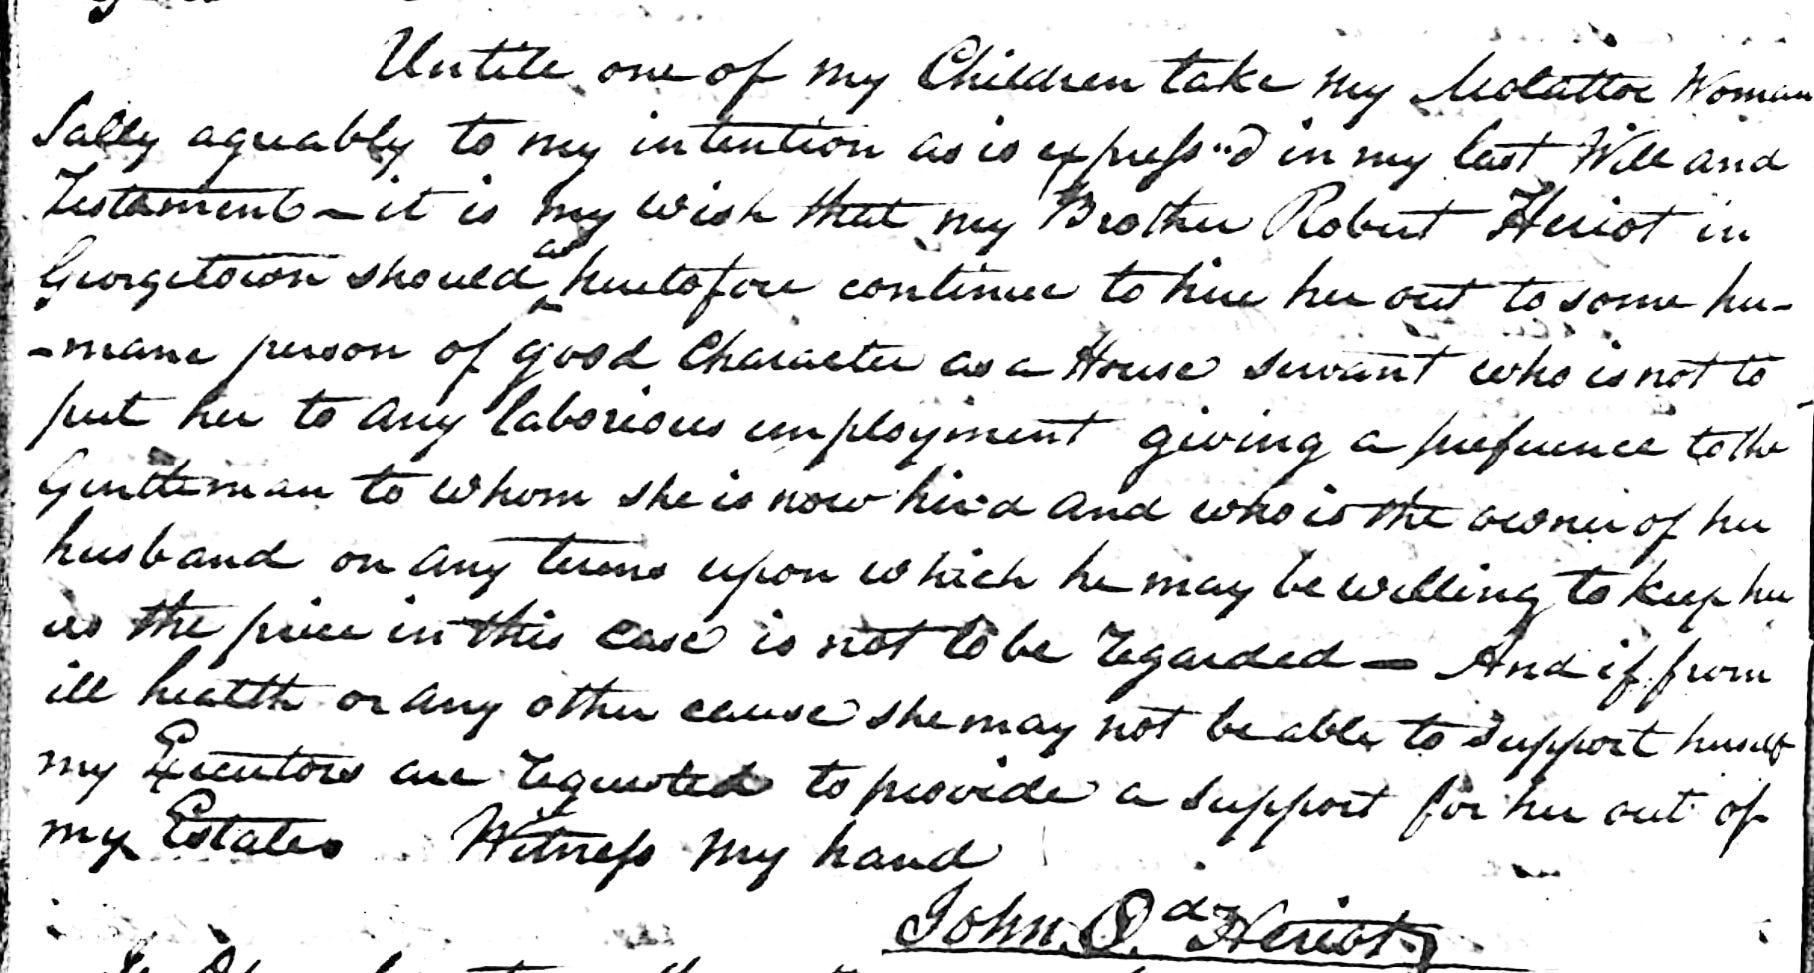 Untill one of my Children take my Molattoe Woman
Sally agreably to my intention as is express'd in my last Will and
Testament - it is my wish that my Brother Robert Heriot in
Georgetown should as heretofore continue to hire her out to some hu-
-mane person of good Character as a House servant who is not to
put her to any laborious employment giving a preference to the
Gentleman to whom she is now hir'd and who is the owner of her
husband on any terms upon which he may be willing to keep her
as the price in this case is not to be regarded - And if from
ill health or any other cause she may not be able to support herself
my Executors are requested to provide a support for her out of
my Estates Witness my hand
John O.d Heriot